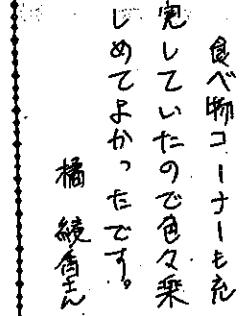 食べ物コーナーも充
実していたので色々楽
しめてよかったです。
橘 綾香さん